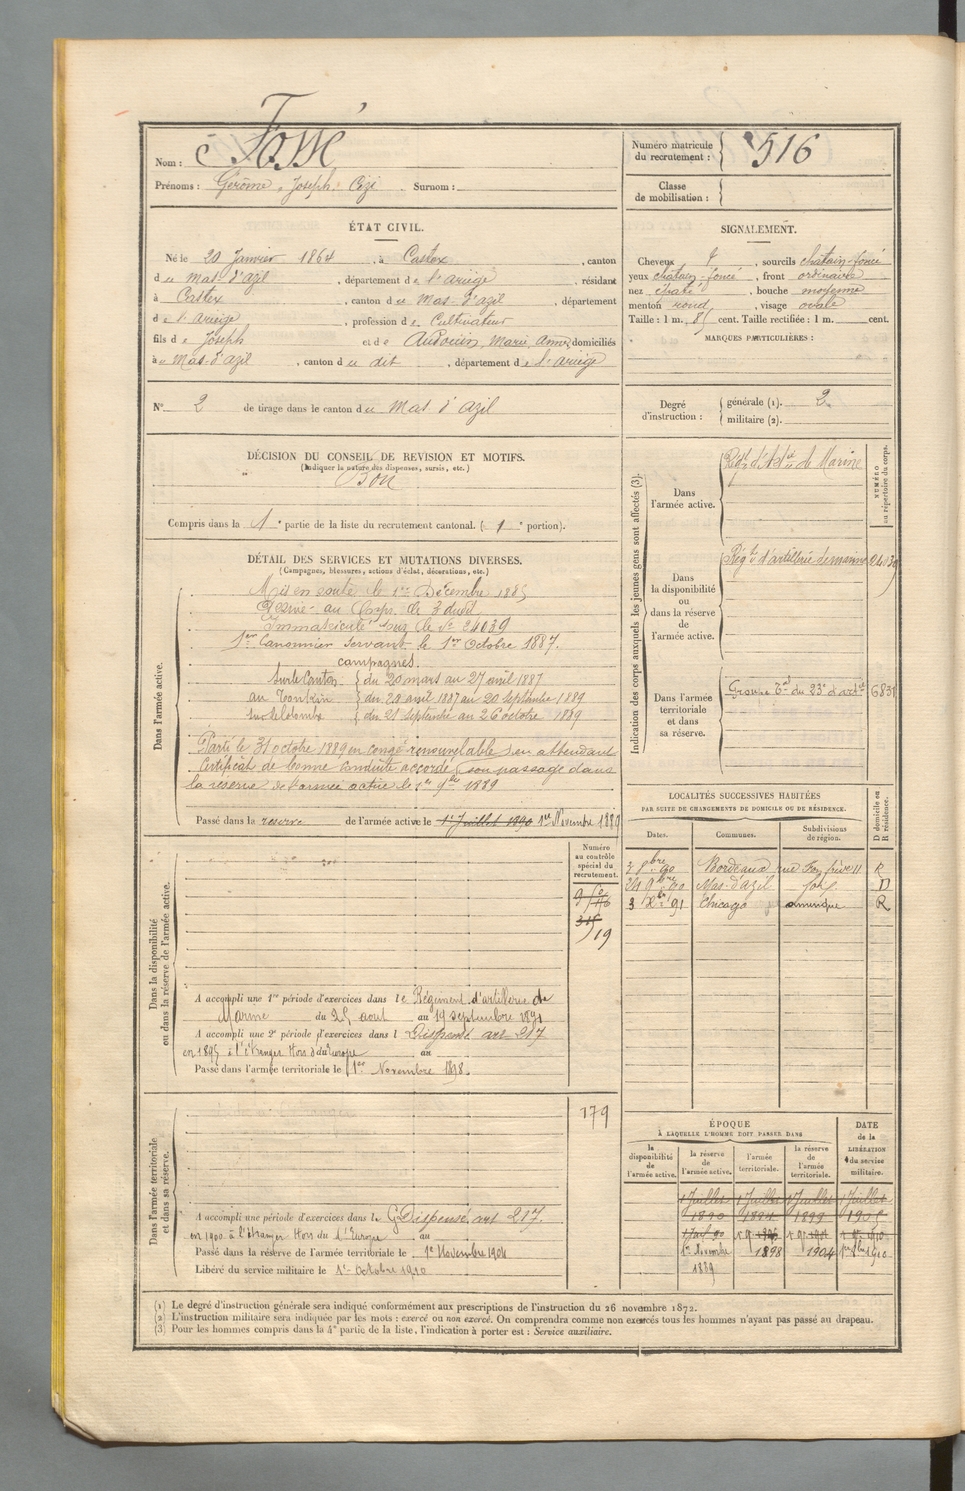 Nom : Fossé
Prénoms : Gérôme, Joseph, Cizi Surnom :
Numéro matricule du recrutement : 516
Classe de mobilisation :
ÉTAT CIVIL.
Né le 20 Janvier 1864, à Castex, canton
du Mas-d'azil, département de l'ariège, résidant
à Castex, canton du Mas-d'azil, département
de l'ariège, profession de Cultivateur
fils de Joseph et de Audouin, Marie, Anne, domiciliés
au Mas-d'azil, canton du dit, département de l'ariège
N° 2 de tirage dans le canton du Mas d'azil
SIGNALEMENT.
Cheveux, sourcils châtain-foncé
yeux châtain-foncé, front ordinaire
nez épaté, bouche moyenne
menton rond, visage ovale
Taille : 1 m. cent. Taille rectifiée : 1 m. cent.
MARQUES PARTICULIÈRES :
Degré d'instruction : générale (1). 2.
militaire (2).
DÉCISION DU CONSEIL DE REVISION ET MOTIFS.
(Indiquer la nature des dispenses, sursis, etc.)
Bon
Compris dans la 1e partie de la liste du recrutement cantonal. (1e portion).
DÉTAIL DES SERVICES ET MUTATIONS DIVERSES.
(Campagnes, blessures, actions d'éclat, décorations, etc.)
Dans l'armée active.
Mis en route le 1er Décembre 1885
Arrivé au Corps le 3 dudit
Immatriculé sous le N° 24039
1er Canonnier servant le 1er Octobre 1887.
campagnes.
Sur le Canton du 20 mars au 27 avril 1887
au Tonkin du 20 avril 1887 au 20 septembre 1889
Sur le Colombo du 21 septembre au 26 octobre 1889
Parti le 31 octobre 1889 en congé renouvelable en attendant
son passage dans
Certificat de bonne conduite accordé
la réserve de l'armée active le 1er 9bre 1889
Passé dans la réserve de l'armée active le 1er Juillet 1890 1er Novembre 1889
Indication des corps auxquels les jeunes gens sont affectés (3).
NUMÉRO au répertoire du corps.
Dans l'armée active.
Régt d'Artie de Marine
Dans la disponibilité ou dans la réserve de l'armée active.
Régt d'artillerie de marine 24039
Dans l'armée territoriale et dans sa réserve.
Groupe du 23e d'artie 6831
LOCALITÉS SUCCESSIVES HABITÉES
PAR SUITE DE CHANGEMENTS DE DOMICILE OU DE RÉSIDENCE.
Dates. Communes. Subdivisions de région. D domicile ou R résidence.
90 Bordeaux R
24 9bre 90 Mas-d'azil D
3 Xbre 91 Chicago R
Dans la disponibilité ou dans la réserve de l'armée active.
Numéro au contrôle spécial du recrutement.
19
A accompli une 1re période d'exercices dans le Régiment d'artillerie de
Marine du 25 aout au 19 septembre 1891
A accompli une 2e période d'exercices dans l Dispensé art 217
en 1895 à l'étranger Hors d'Europe au
Passé dans l'armée territoriale le 1er Novembre 1898.
Dans l'armée territoriale et dans sa réserve.
179
A accompli une période d'exercices dans le G Dispensé art 217.
en 1900 à l'étranger Hors de l'Europe au
Passé dans la réserve de l'armée territoriale le 1er Novembre 1904
Libéré du service militaire le 1er Octobre 1910
ÉPOQUE
À LAQUELLE L'HOMME DOIT PASSER DANS
DATE de la LIBÉRATION du service militaire.
la disponibilité de l'armée active. la réserve de l'armée active. l'armée territoriale. la réserve de l'armée territoriale.
1 Juillet 1 Juillet 1 Juillet 1 Juillet
1890 1894 1899 1905
1er Novembre 1889 1898 1904
(1) Le degré d'instruction générale sera indiqué conformément aux prescriptions de l'instruction du 26 novembre 1872.
(2) L'instruction militaire sera indiquée par les mots : exercé ou non exercé. On comprendra comme non exercés tous les hommes n'ayant pas passé au drapeau.
(3) Pour les hommes compris dans la 4e partie de la liste, l'indication à porter est : Service auxiliaire.